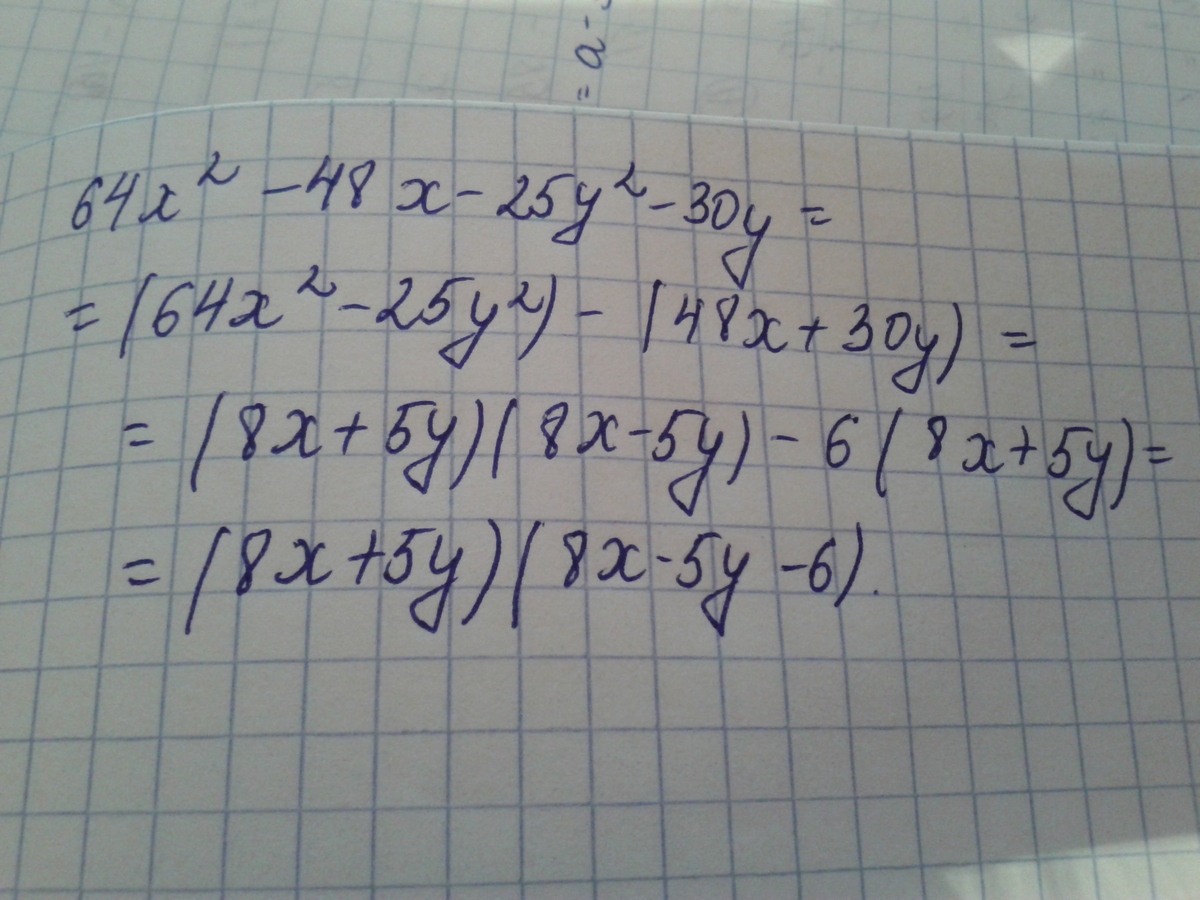 = a -
64x² - 48x - 25y² - 30y =
= (64x² - 25y²) - (48x + 30y) =
= (8x + 5y)(8x - 5y) - 6(8x + 5y) =
= (8x + 5y)(8x - 5y - 6).